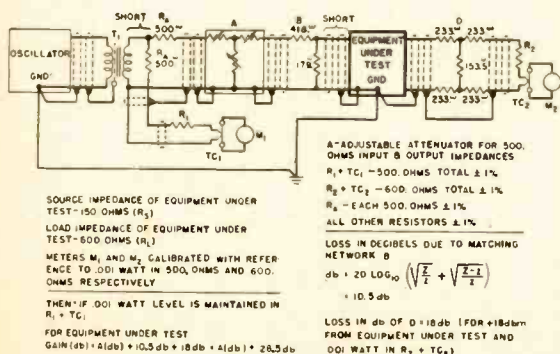 SHORT
A
B
SHORT
D
T1
RA
500ω
418ω
233ω 233ω
OSCILLATOR
GND
RA
500
179
EQUIPMENT
UNDER
TEST
GND
153.5ω
R2
TC2
M2
R1
TC1
M1
233ω 233ω
SOURCE IMPEDANCE OF EQUIPMENT UNDER
TEST-150 OHMS (RS)
LOAD IMPEDANCE OF EQUIPMENT UNDER
TEST-600 OHMS (RL)
METERS M1 AND M2 CALIBRATED WITH REFER
ENCE TO .001 WATT IN 500, OHMS AND 600.
OHMS RESPECTIVELY
THEN IF .001 WATT LEVEL IS MAINTAINED IN
R1 + TC1
FOR EQUIPMENT UNDER TEST
GAIN (db) = A(db) + 10.5 db + 18 db = A(db) + 28.5 db
A-ADJUSTABLE ATTENUATOR FOR 500.
OHMS INPUT & OUTPUT IMPEDANCES
R1 + TC1 -500. OHMS TOTAL ± 1%
R2 + TC2 -600. OHMS TOTAL ± 1%
RA - EACH 500. OHMS ± 1%
ALL OTHER RESISTORS ± 1%
LOSS IN DECIBELS DUE TO MATCHING
NETWORK B
db = 20 LOG10 (√Z/z + √(Z-z)/z)
= 10.5 db
LOSS IN db OF D = 18 db (FOR +18 dbm
FROM EQUIPMENT UNDER TEST AND
.001 WATT IN R2 + TC2)